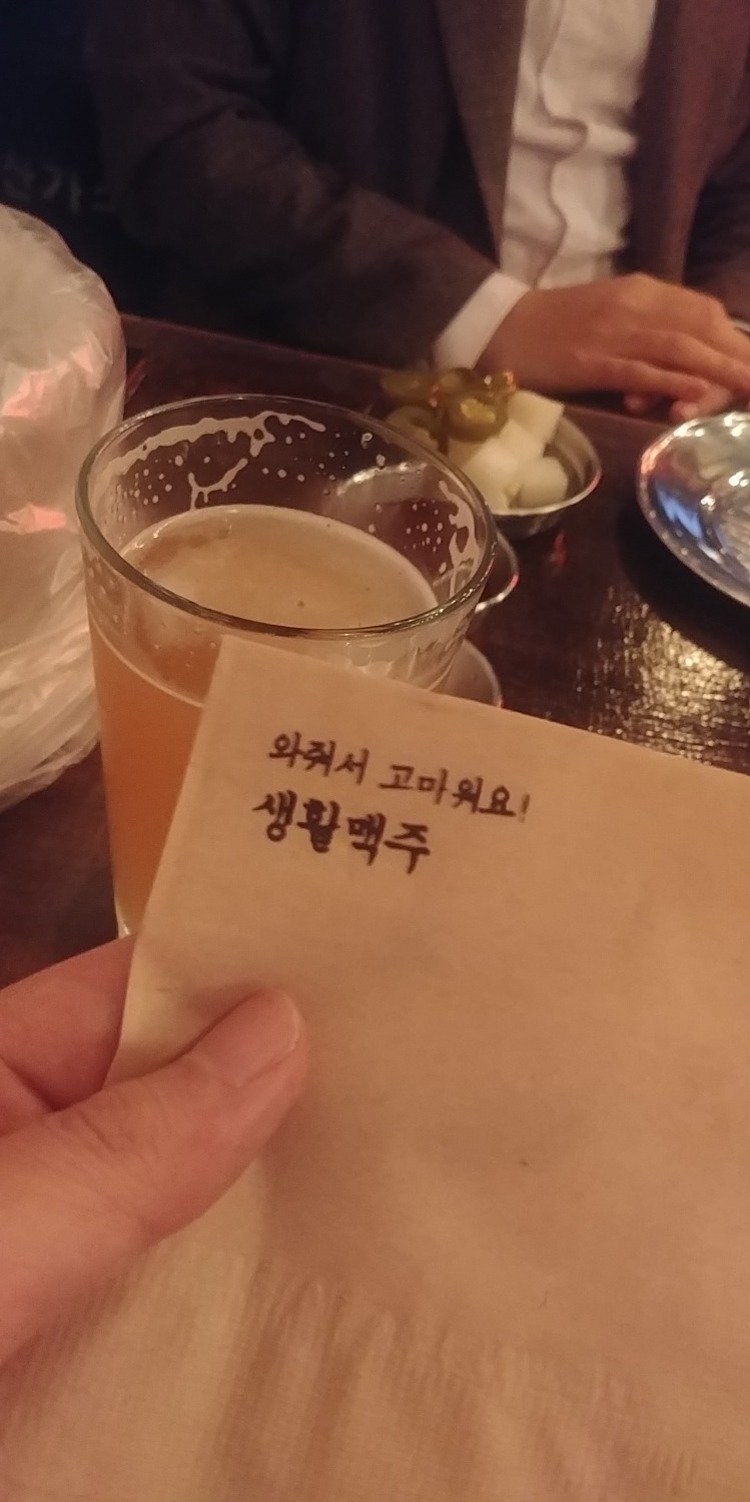 와줘서 고마워요!
생활맥주